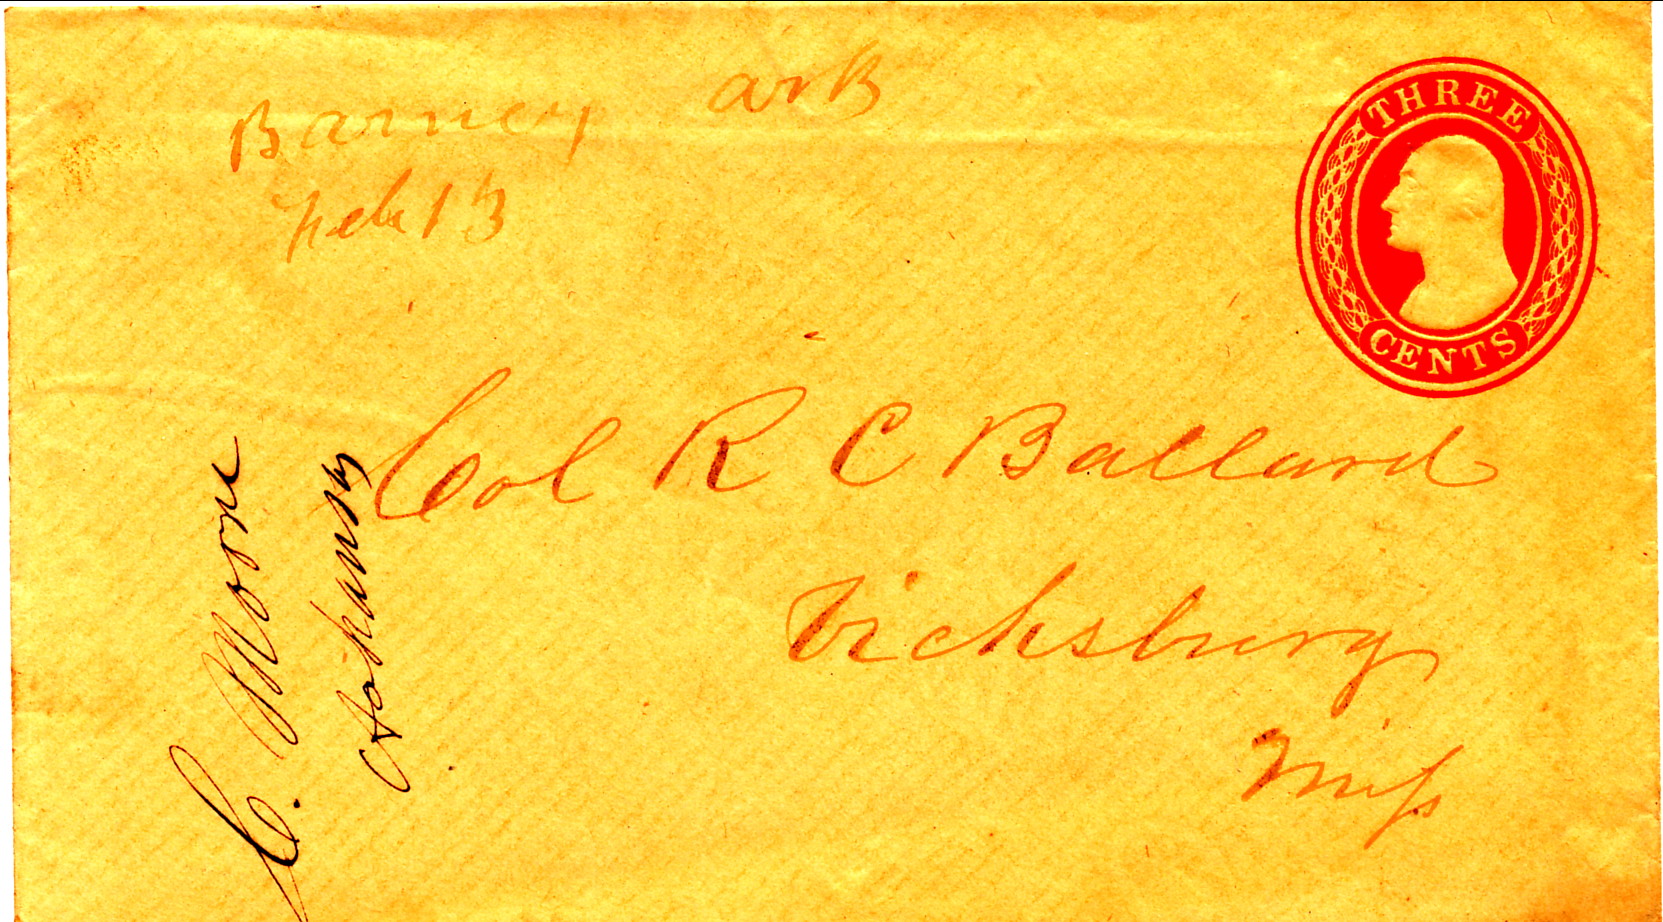 Barney Ark
Feb 13
THREE
CENTS
Col R C Ballard
Vicksburg
Miss
C. Moore
Arkansas